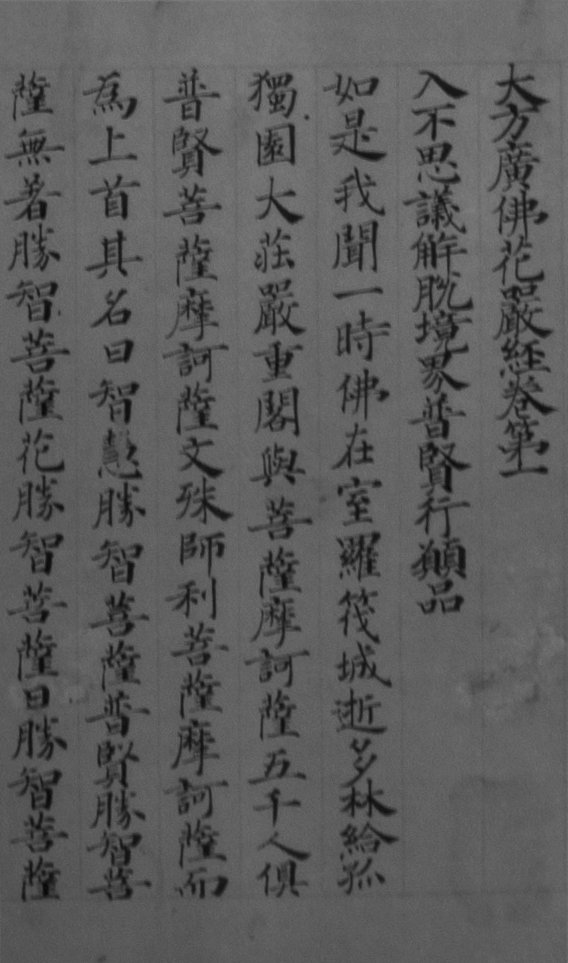 大方廣佛花嚴經卷第一
入不思議解脫境界普賢行願品
如是我聞一時佛在室羅筏城逝多林給孤
獨園大莊嚴重閣與菩薩摩訶薩五千人俱
普賢菩薩摩訶薩文殊師利菩薩摩訶薩而
為上首其名曰智慧勝智菩薩普賢勝智菩
薩無著勝智菩薩花勝智菩薩日勝智菩薩